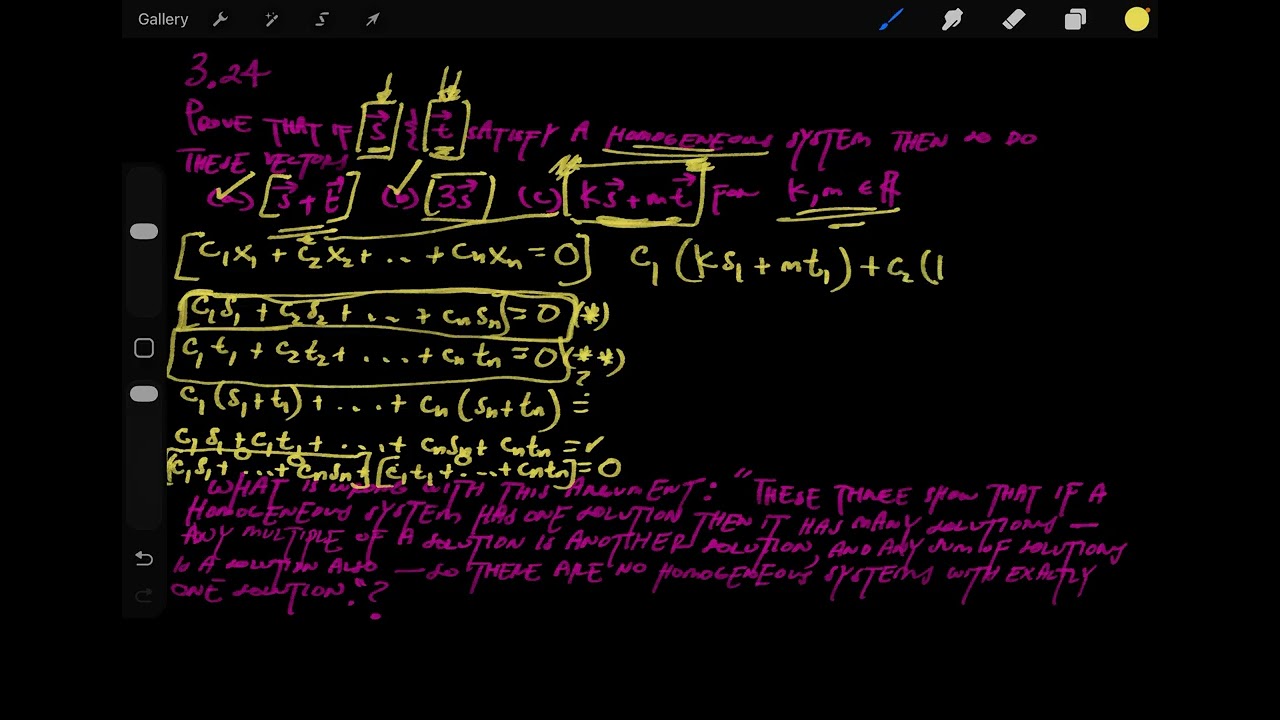 Gallery
3.24
PROVE THAT IF s⃗ & t⃗ SATISFY A HOMOGENEOUS SYSTEM THEN SO DO
THESE VECTORS
(a) s⃗ + t⃗ (b) 3s⃗ (c) ks⃗ + mt⃗ FOR k, m ∈ ℝ
c₁x₁ + c₂x₂ + ... + cₙxₙ = 0
c₁(ks₁ + mt₁) + c₂(
c₁s₁ + c₂s₂ + ... + cₙsₙ = 0 (*)
c₁t₁ + c₂t₂ + ... + cₙtₙ = 0 (**)
c₁(s₁+t₁) + ... + cₙ(sₙ+tₙ) ?=
c₁s₁ + c₁t₁ + ... + cₙsₙ + cₙtₙ = ✓
[c₁s₁ + ... + cₙsₙ] + [c₁t₁ + ... + cₙtₙ] = 0
WHAT IS WRONG WITH THIS ARGUMENT: "THESE THREE SHOW THAT IF A
HOMOGENEOUS SYSTEM HAS ONE SOLUTION THEN IT HAS MANY SOLUTIONS —
ANY MULTIPLE OF A SOLUTION IS ANOTHER SOLUTION, AND ANY SUM OF SOLUTIONS
IS A SOLUTION ALSO — SO THERE ARE NO HOMOGENEOUS SYSTEMS WITH EXACTLY
ONE SOLUTION."?